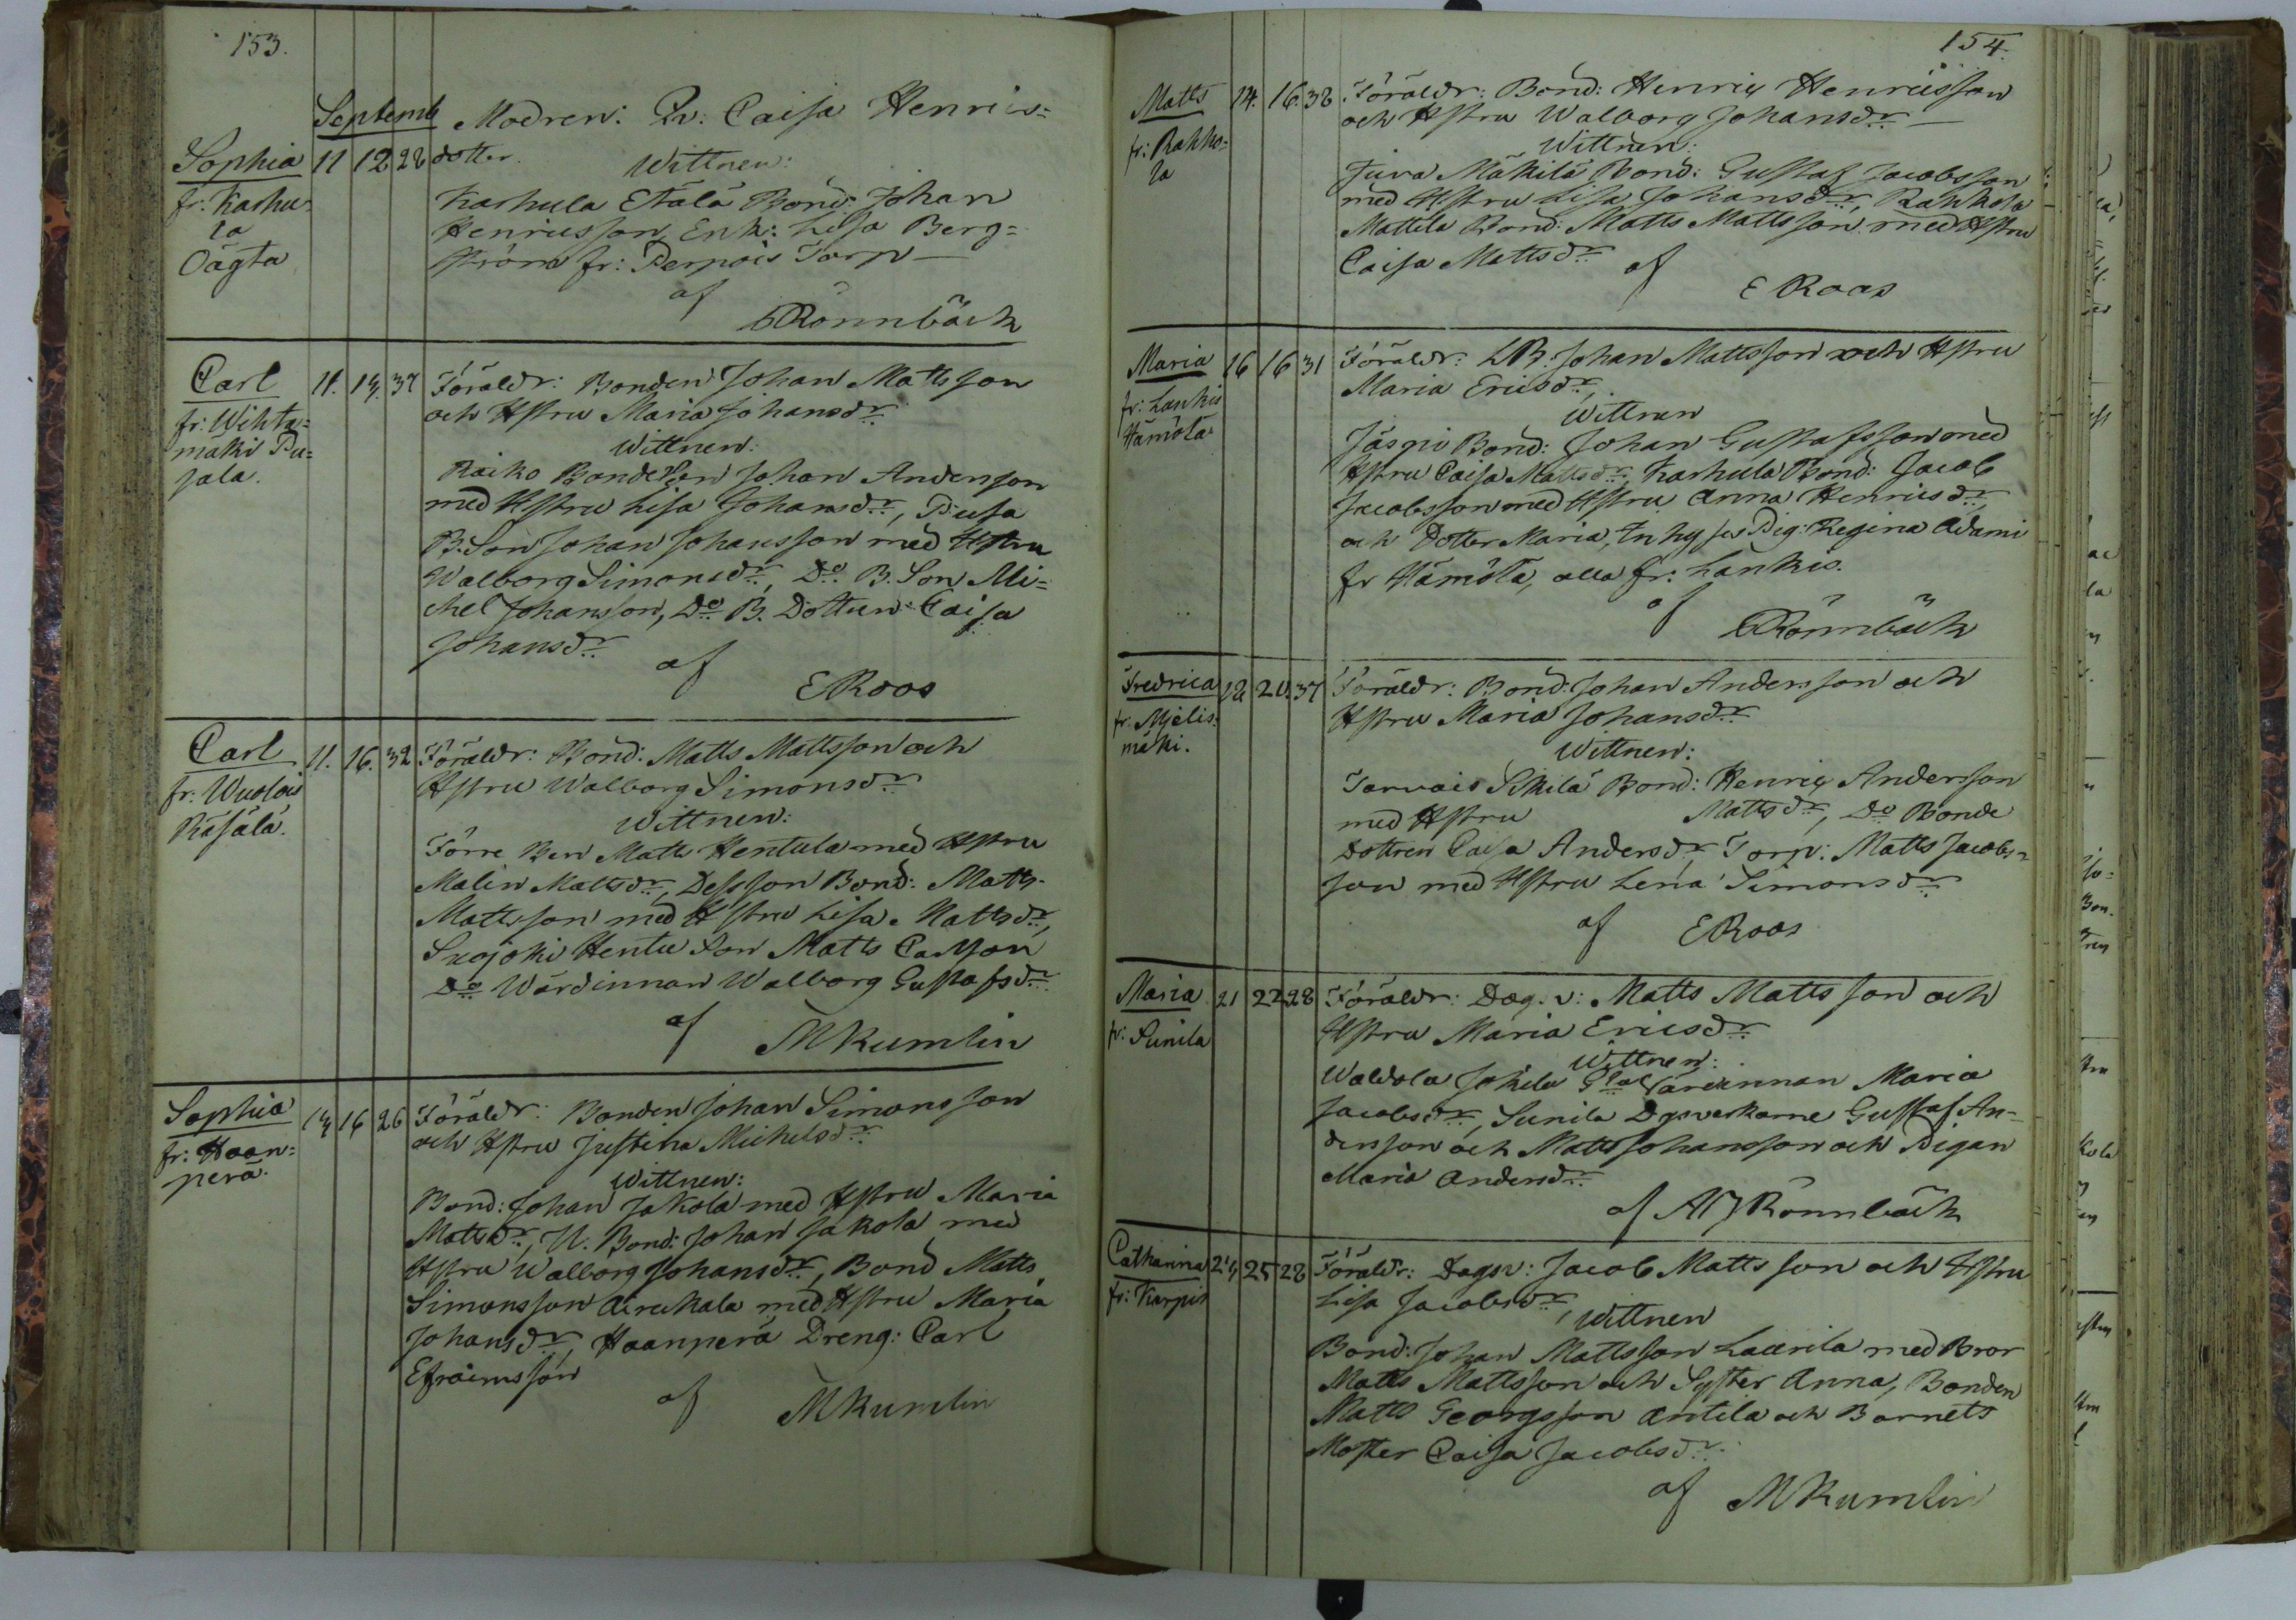 153.
Septemb
Modren: Qv: Caisa Henrics=
Sophia 11 12 28 dotter.
Wittnen:
fr: Karhu=
la
Oägta
Karhula Etälä Bond: Johan
Henricsson, Enk: Lisa Berg=
ström fr: Perpois Torp —
af
Rönnbäck
Carl 11. 14. 37 Föräldr: Bonden Johan Mattsson
fr: Wihta=
mäki Pu=
sala.
och Hstru Maria Johansdr.
Wittnen:
Raiko Bonde Son Johan Andersson
med Hstru Lisa Johansdr, Pusa
B. Son Johan Johansson med Hstru
Walborg Simonsdr, Do B. Son Mi=
chel Johansson, Do B. Dottren Caisa
Johansdr.
af
E Roos
Carl 11. 16. 32 Föräldr: Bond: Matts Mattsson och
fr: Wuolois
Räsälä.
Hstru Walborg Simonsdr
Wittnen:
Förre Matts Hentula med Hstru
Malin Mattsdr, Dess son Bond: Matts
Mattsson med Hstru Lisa Mattsdr,
Suojoki Hentu Son Matts Carlsson
Do Wärdinnan Walborg Gustafsdr.
af
M Kumlin
Sophia 14 16 26 Föräldr: Bonden Johan Simonsson
fr: Haan=
perä.
och Hstru Justina Michelsdr.
Wittnen:
Bond: Johan Jakola med Hstru Maria
Mattsdr, U. Bond: Johan Jakola med
Hstru Walborg Johansdr, Bond Matts
Simonsson Airukala med Hstru Maria
Johansdr, Haanperä Dreng: Carl
Efraimsson
af
M Kumlin
154.
Matts 14. 16. 38 Föräldr: Bond: Henric Henricsson
fr: Rahko=
la
och Hstru Walborg Johansdr. —
Wittnen:
Juva Mäkilä Bond: Gustaf Jacobsson
med Hstru Lisa Johansdr, Rahkola
Mattila Bond: Matts Mattsson med Hstru
Caisa Mattsdr
af
E Roos
Maria 16 16 31 Föräldr: LB. Johan Mattsson och Hstru
fr: Lankis
Hämölä
Maria Ericsdr,
Wittnen
Jäspi Bond: Johan Gustafsson med
Hstru Caisa Mattsdr, Karhula Bond: Jacob
Jacobsson med Hstru Anna Henricsdr,
och Dotter Maria, Inhyses Pig: Regina Adami
fr Hämölä, alla fr: Lankis.
af
Rönnbäck
Fredrica 18 20. 37 Föräldr: Bond: Johan Andersson och
fr: Mjelis=
mäki.
Hstru Maria Johansdr
Wittnen:
Tarvais Sikilä Bond: Henric Andersson
med Hstru Mattsdr, Do Bonde
Dottren Caisa Andersdr, Torp: Matts Jacobs=
son med Hstru Lena Simonsdr
af
E Roos
Maria 21 22 28 Föräldr: Dag. v: Matts Mattsson och
fr: Sunila
Hstru Maria Ericsdr
Wittnen:
Waldola Johila Glal Wärdinnan Maria
Jacobsdr, Sunila Dgsverkarne Gustaf An=
dersson och Matts Johansson och Pigan
Maria Andersdr.
af A J Rönnbäck
Catharina 24 25 28 Föräldr: Dagsv: Jacob Mattsson och Hstru
fr: Karpis
Lisa Jacobsdr,
Wittnen
Bond: Johan Mattsson Laurila med Bror
Matts Mattsson och Syster Anna, Bonden
Matts Georgsson Antila och Barnets
Moster Caisa Jacobsdr.
af
M Kumlin